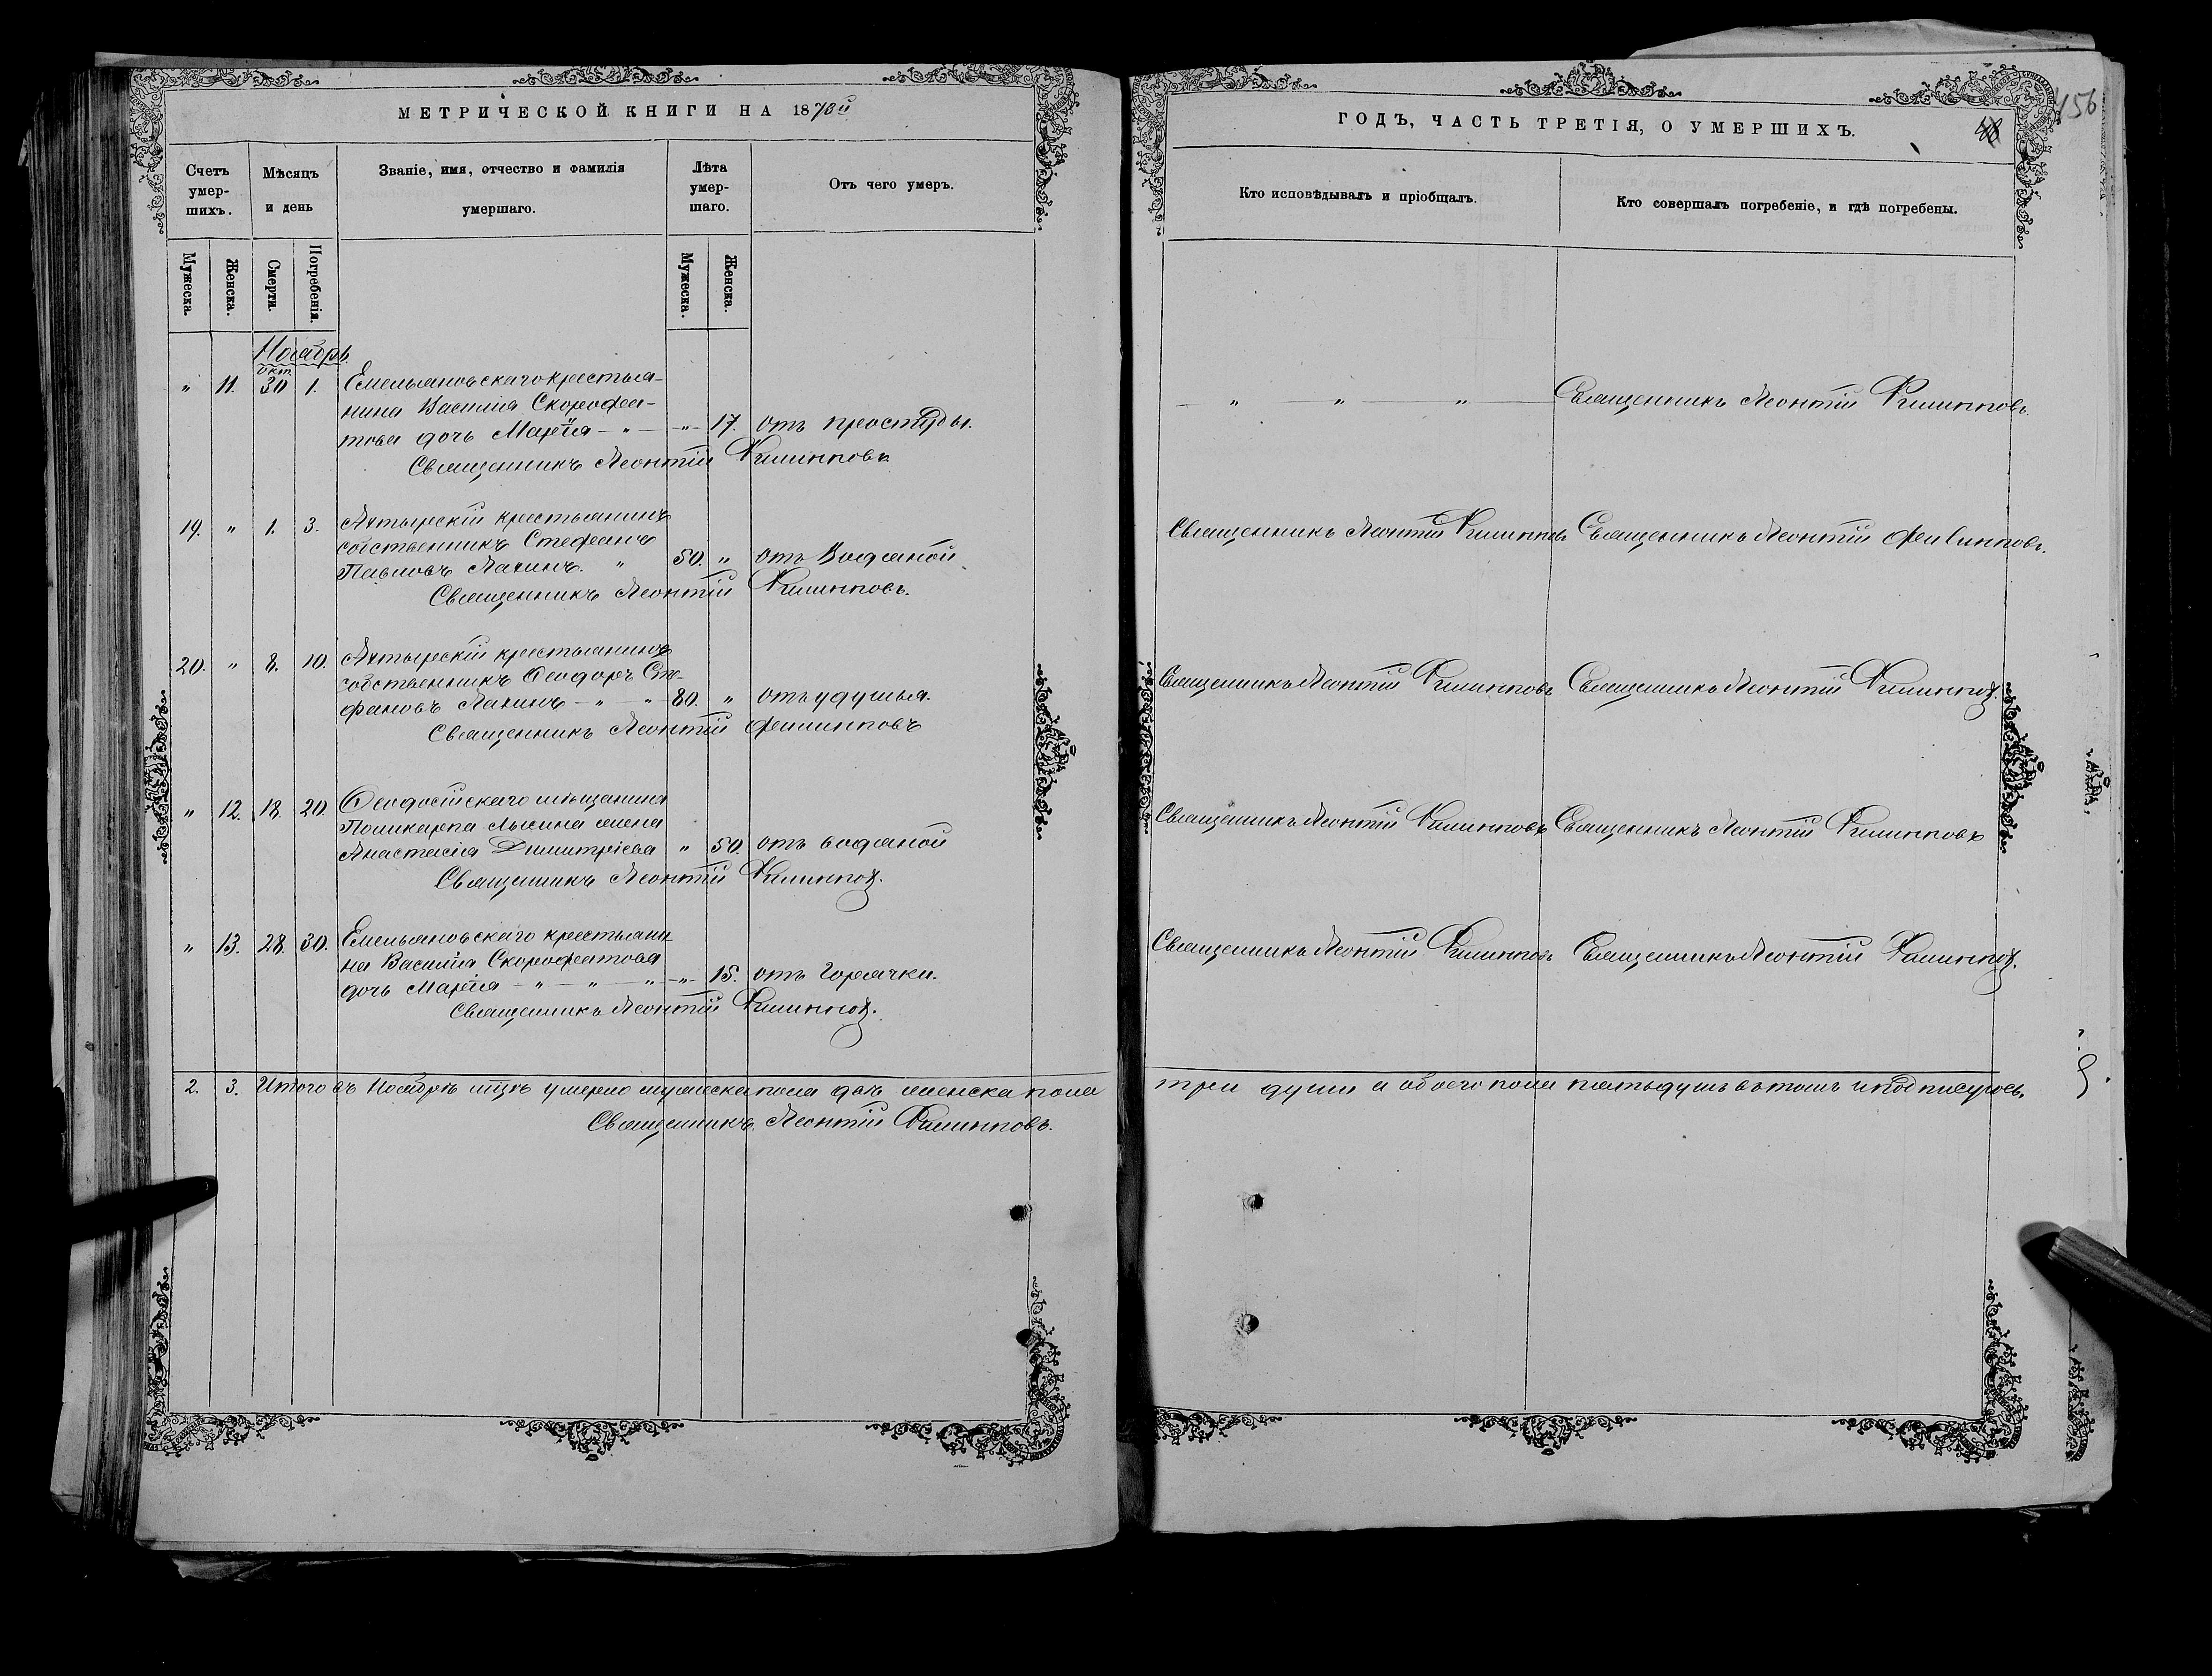 МЕТРИЧЕСКОЙ КНИГИ НА 1873й
Счетъ умер-шихъ.
Мѣсяцъ и день
Званіе, имя, отчество и фамилія умершаго.
Лѣта умер-шаго.
Отъ чего умеръ.
Мужеска.
Женска.
Смерти.
Погребенія.
Мужеска.
Женска.
Ноябрь.
окт.
" 11. 30 1. Емельяновскаго крестья-
нина Василія Скорофеа-
това дочь Марѳія " " 17. отъ простуды.
Священникъ Леонтій Филипповъ
19. " 1. 3. Ахтырскій крестьянинъ
собственникъ Стефанъ
Павловъ Лахинъ. " 50. " отъ Водяной.
Священникъ Леонтій Филипповъ.
20. " 8. 10. Ахтырскій крестьянинъ
собственникъ Ѳеодоръ Сте-
фановъ Лахинъ " " 80. " отъ удушья.
Священникъ Леонтій Филипповъ
" 12. 18. 20. Ѳеодосійскаго мѣщанина
Поликарпа жена
Анастасія Димитріева " 50. отъ водяной
Священникъ Леонтій Филиппов.
" 13. 28. 30. Емельяновскаго крестьяни
на Василія Скорофеатова
дочь Марѳія " " " " 15. отъ Горячки.
Священникъ Леонтій Филиппов.
2. 3. Итого въ Ноябрѣ мцѣ умерло мужеска пола двѣ женска пола
Священникъ Леонтій Филипповъ.
ГОДЪ, ЧАСТЬ ТРЕТІЯ, О УМЕРШИХЪ.
456
Кто исповѣдывалъ и пріобщалъ.
Кто совершалъ погребеніе, и гдѣ погребены.
" " " Священникъ Леонтій Филипповъ.
Священникъ Леонтій Филипповъ Священникъ Леонтій Филипповъ.
Священникъ Леонтій Филипповъ Священникъ Леонтій Филиппов.
Священникъ Леонтій Филипповъ Священникъ Леонтій Филипповъ
Священникъ Леонтій Филипповъ Священникъ Леонтій Филиппов.
три души а обоего пола пять душъ въ томъ и подписуюсь.